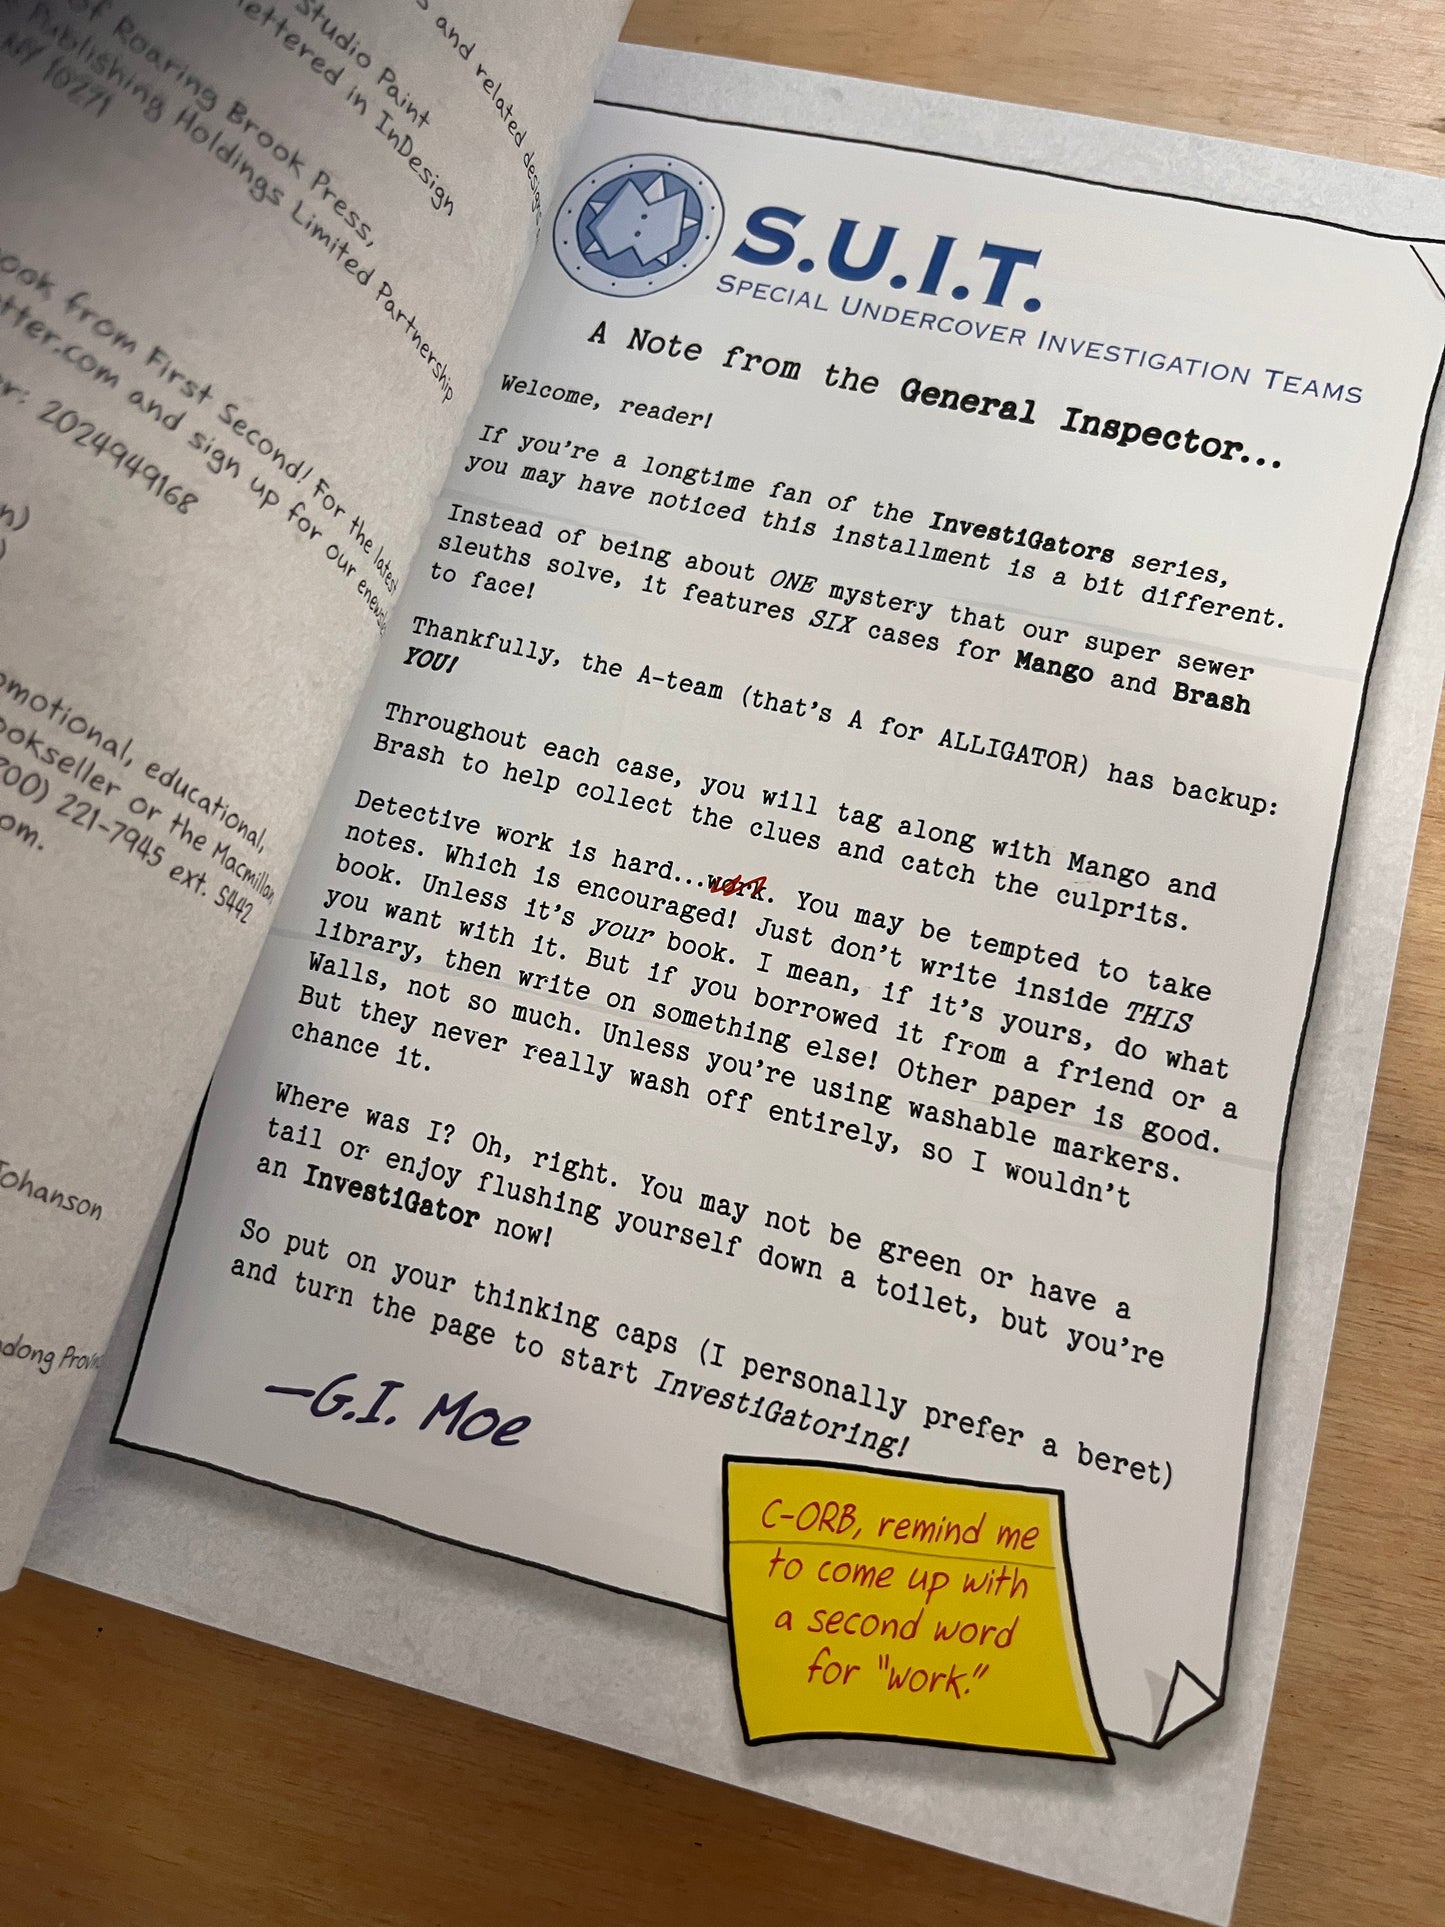 and related designs
Studio Paint
lettered in InDesign
of Roaring Brook Press,
Publishing Holdings Limited Partnership
NY 10271
book from First Second! For the latest
and sign up for our
2024949168
promotional, educational,
bookseller or the Macmillan
221-7945 ext. 5442
Johanson
S.U.I.T.
SPECIAL UNDERCOVER INVESTIGATION TEAMS
A Note from the General Inspector...
Welcome, reader!
If you're a longtime fan of the InvestiGators series,
you may have noticed this installment is a bit different.
Instead of being about ONE mystery that our super sewer
sleuths solve, it features SIX cases for Mango and Brash
to face!
Thankfully, the A-team (that's A for ALLIGATOR) has backup:
YOU!
Throughout each case, you will tag along with Mango and
Brash to help collect the clues and catch the culprits.
Detective work is hard...work. You may be tempted to take
notes. Which is encouraged! Just don't write inside THIS
book. Unless it's your book. I mean, if it's yours, do what
you want with it. But if you borrowed it from a friend or a
library, then write on something else! Other paper is good.
Walls, not so much. Unless you're using washable markers.
But they never really wash off entirely, so I wouldn't
chance it.
Where was I? Oh, right. You may not be green or have a
tail or enjoy flushing yourself down a toilet, but you're
an InvestiGator now!
So put on your thinking caps (I personally prefer a beret)
and turn the page to start InvestiGatoring!
—G.I. Moe
C-ORB, remind me
to come up with
a second word
for "work."